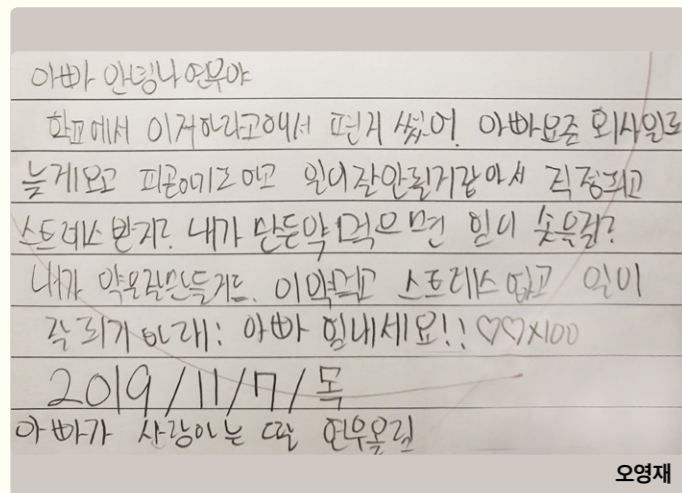 아빠 안녕나 연우야
학교에서 이거하라고해서 편지 썼어. 아빠요즘 회사일로
늦게오고 피곤하기도하고 일이잘안될거같아서 걱정되고
스트레스 받지? 내가 만든약먹으면 일이 술술될?
내가 약을잘만들거든. 이약먹고 스트레스 없고 일이
잘 되기 바래! 아빠 힘내세요!! ♡♡×100
2019/11/7/목
아빠가 사랑하는 딸 연우올림
오영재